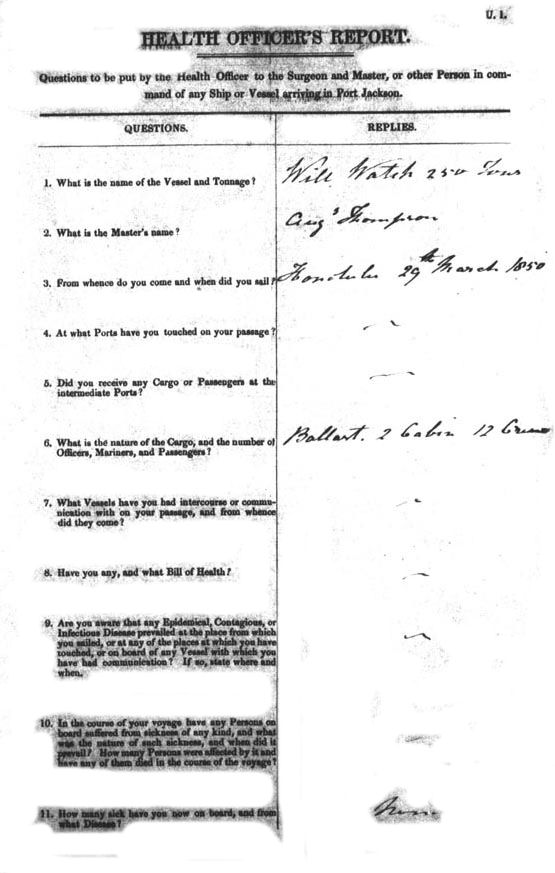 U. 1.
HEALTH OFFICER'S REPORT.
Questions to be put by the Health Officer to the Surgeon and Master, or other Person in com-
mand of any Ship or Vessel arriving in Port Jackson.
QUESTIONS. REPLIES.
1. What is the name of the Vessel and Tonnage? Will Watch 250 Tons
2. What is the Master's name? Augs Thompson
3. From whence do you come and when did you sail? Honolulu 29th March 1850
4. At what Ports have you touched on your passage?
5. Did you receive any Cargo or Passengers at the
intermediate Ports?
6. What is the nature of the Cargo, and the number of Ballast. 2 Cabin 12 Crew
Officers, Mariners, and Passengers?
7. What Vessels have you had intercourse or commu-
nication with on your passage, and from whence
did they come?
8. Have you any, and what Bill of Health?
9. Are you aware that any Epidemical, Contagious, or
Infectious Disease prevailed at the place from which
you sailed, or at any of the places at which you have
touched, or on board of any Vessel with which you
have had communication? If so, state where and
when.
10. In the course of your voyage have any Persons on
board suffered from sickness of any kind, and what
was the nature of such sickness, and when did it
prevail? How many Persons were affected by it and
have any of them died in the course of the voyage?
11. How many sick have you now on board, and from None
what Disease?